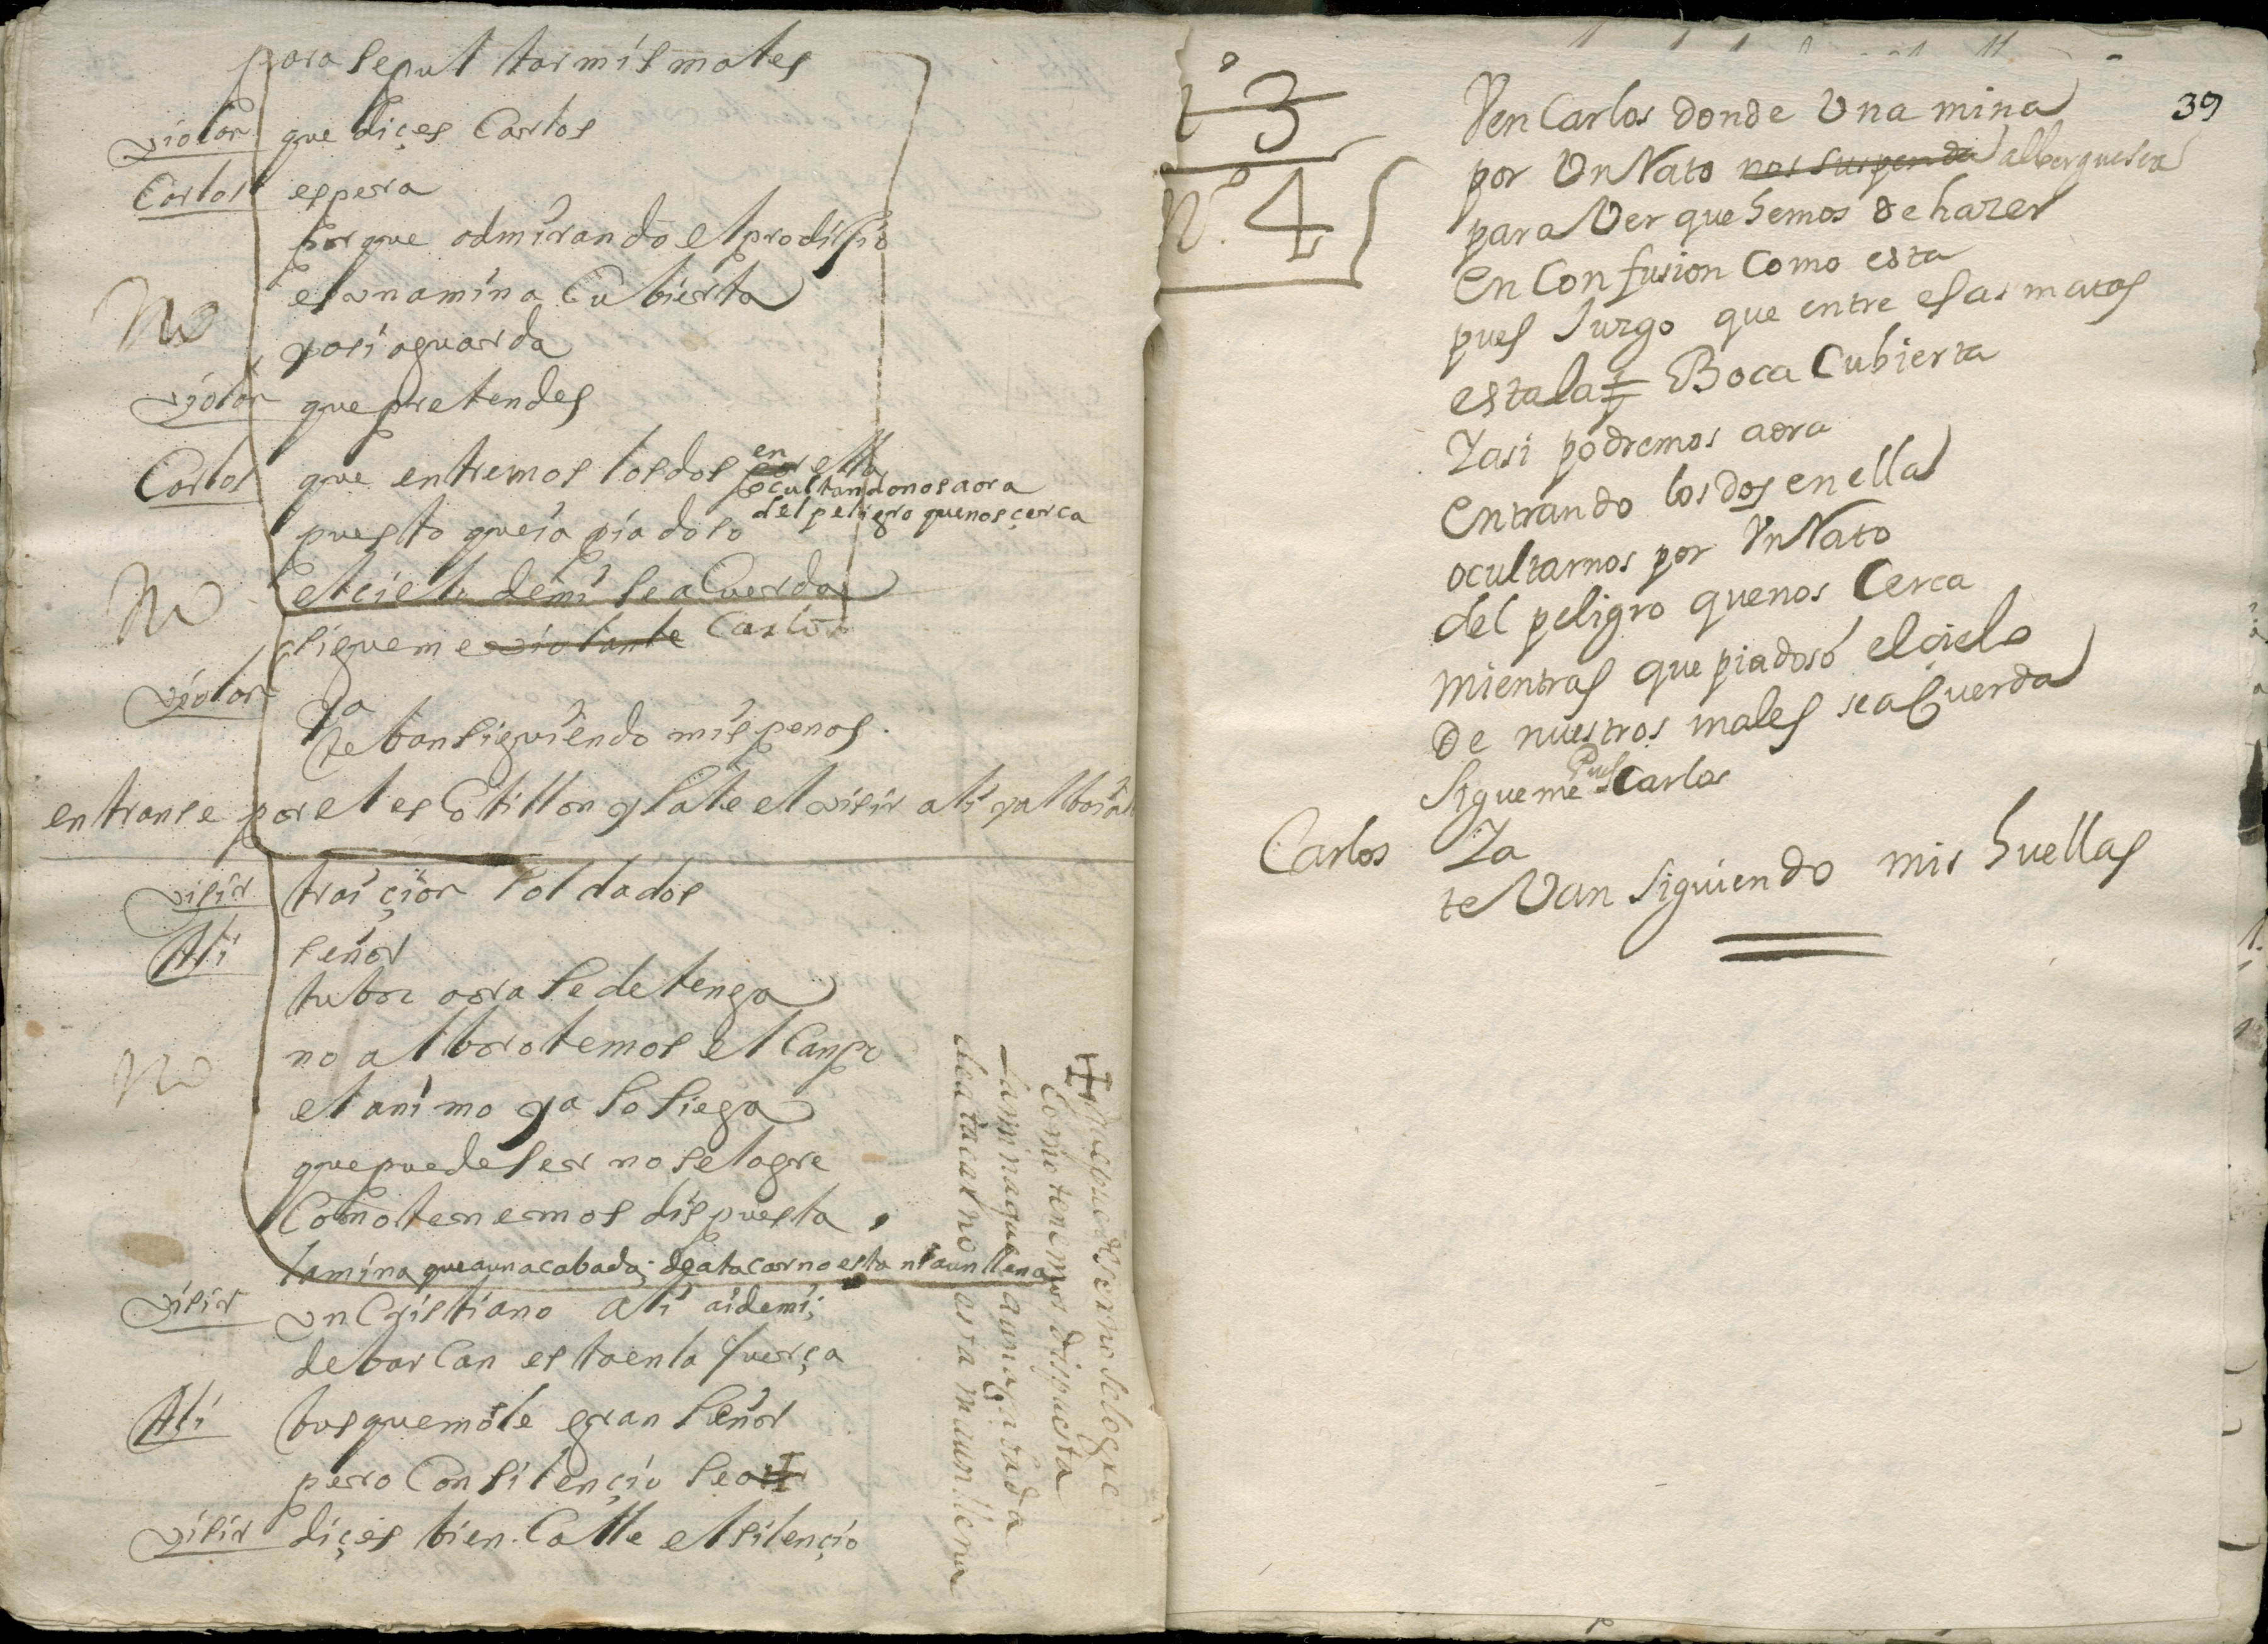 para sepultar mis males
violan que diçes Carlos
Carlos espera
porque admirando el prodisio
es una mina Cubierta
no
yasi aguarda
violan que pretendes
Carlos que entremos los dos por en ella
ocultandonos aora
del peligro quenos çerca
puesto que ia piadoso
no el cielo demi se aCuerda
sigueme violante Carlos
violan ya
te ban siguiendo mis penas.
entranse por el esCotillon y sale el visir ali y
visir traiçion soldados
Ali señor
tu boz aora se detenga
no alborotemos el Canpo
no
el animo ya sosiega
que puede ser no se logre
Como tenemos dispuesta
lamina que aun acabada; de atacar no esta ni aun llena
visir un Cristiano ali ai demi;
debarCan esta en la fuerça
Ali busquemosle gran señor
pero Con silençio sea
visir diçes bien. Calle el silençio
que puede ser no se logre
Como tenemos dispuesta
la mina que aun acabada
de atacar no esta ni aun llena
39
3
n.º 4
Ven Carlos donde Una mina
por Un Rato nos suspenda albergue sea
para Ver que hemos de hazer
en Confusion Como esta
pues Juzgo que entre esas matas
esta la Boca Cubierta
Yasi podremos aora
entrando los dos en ella
ocultarnos por Un Rato
del peligro quenos Cerca
mientras que piadosó el cielo
De nuestros males se aCuerda
Sigueme Pues Carlos
Carlos Ya
te Van siguiendo mis huellas